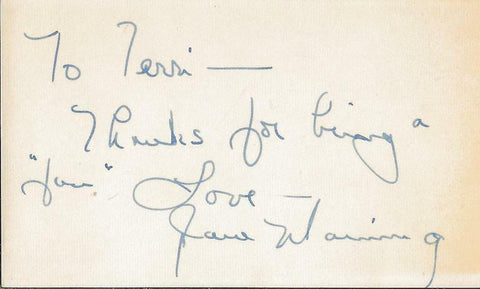 To Terri —
Thanks for being a
"fan" Love —
Jane Manning